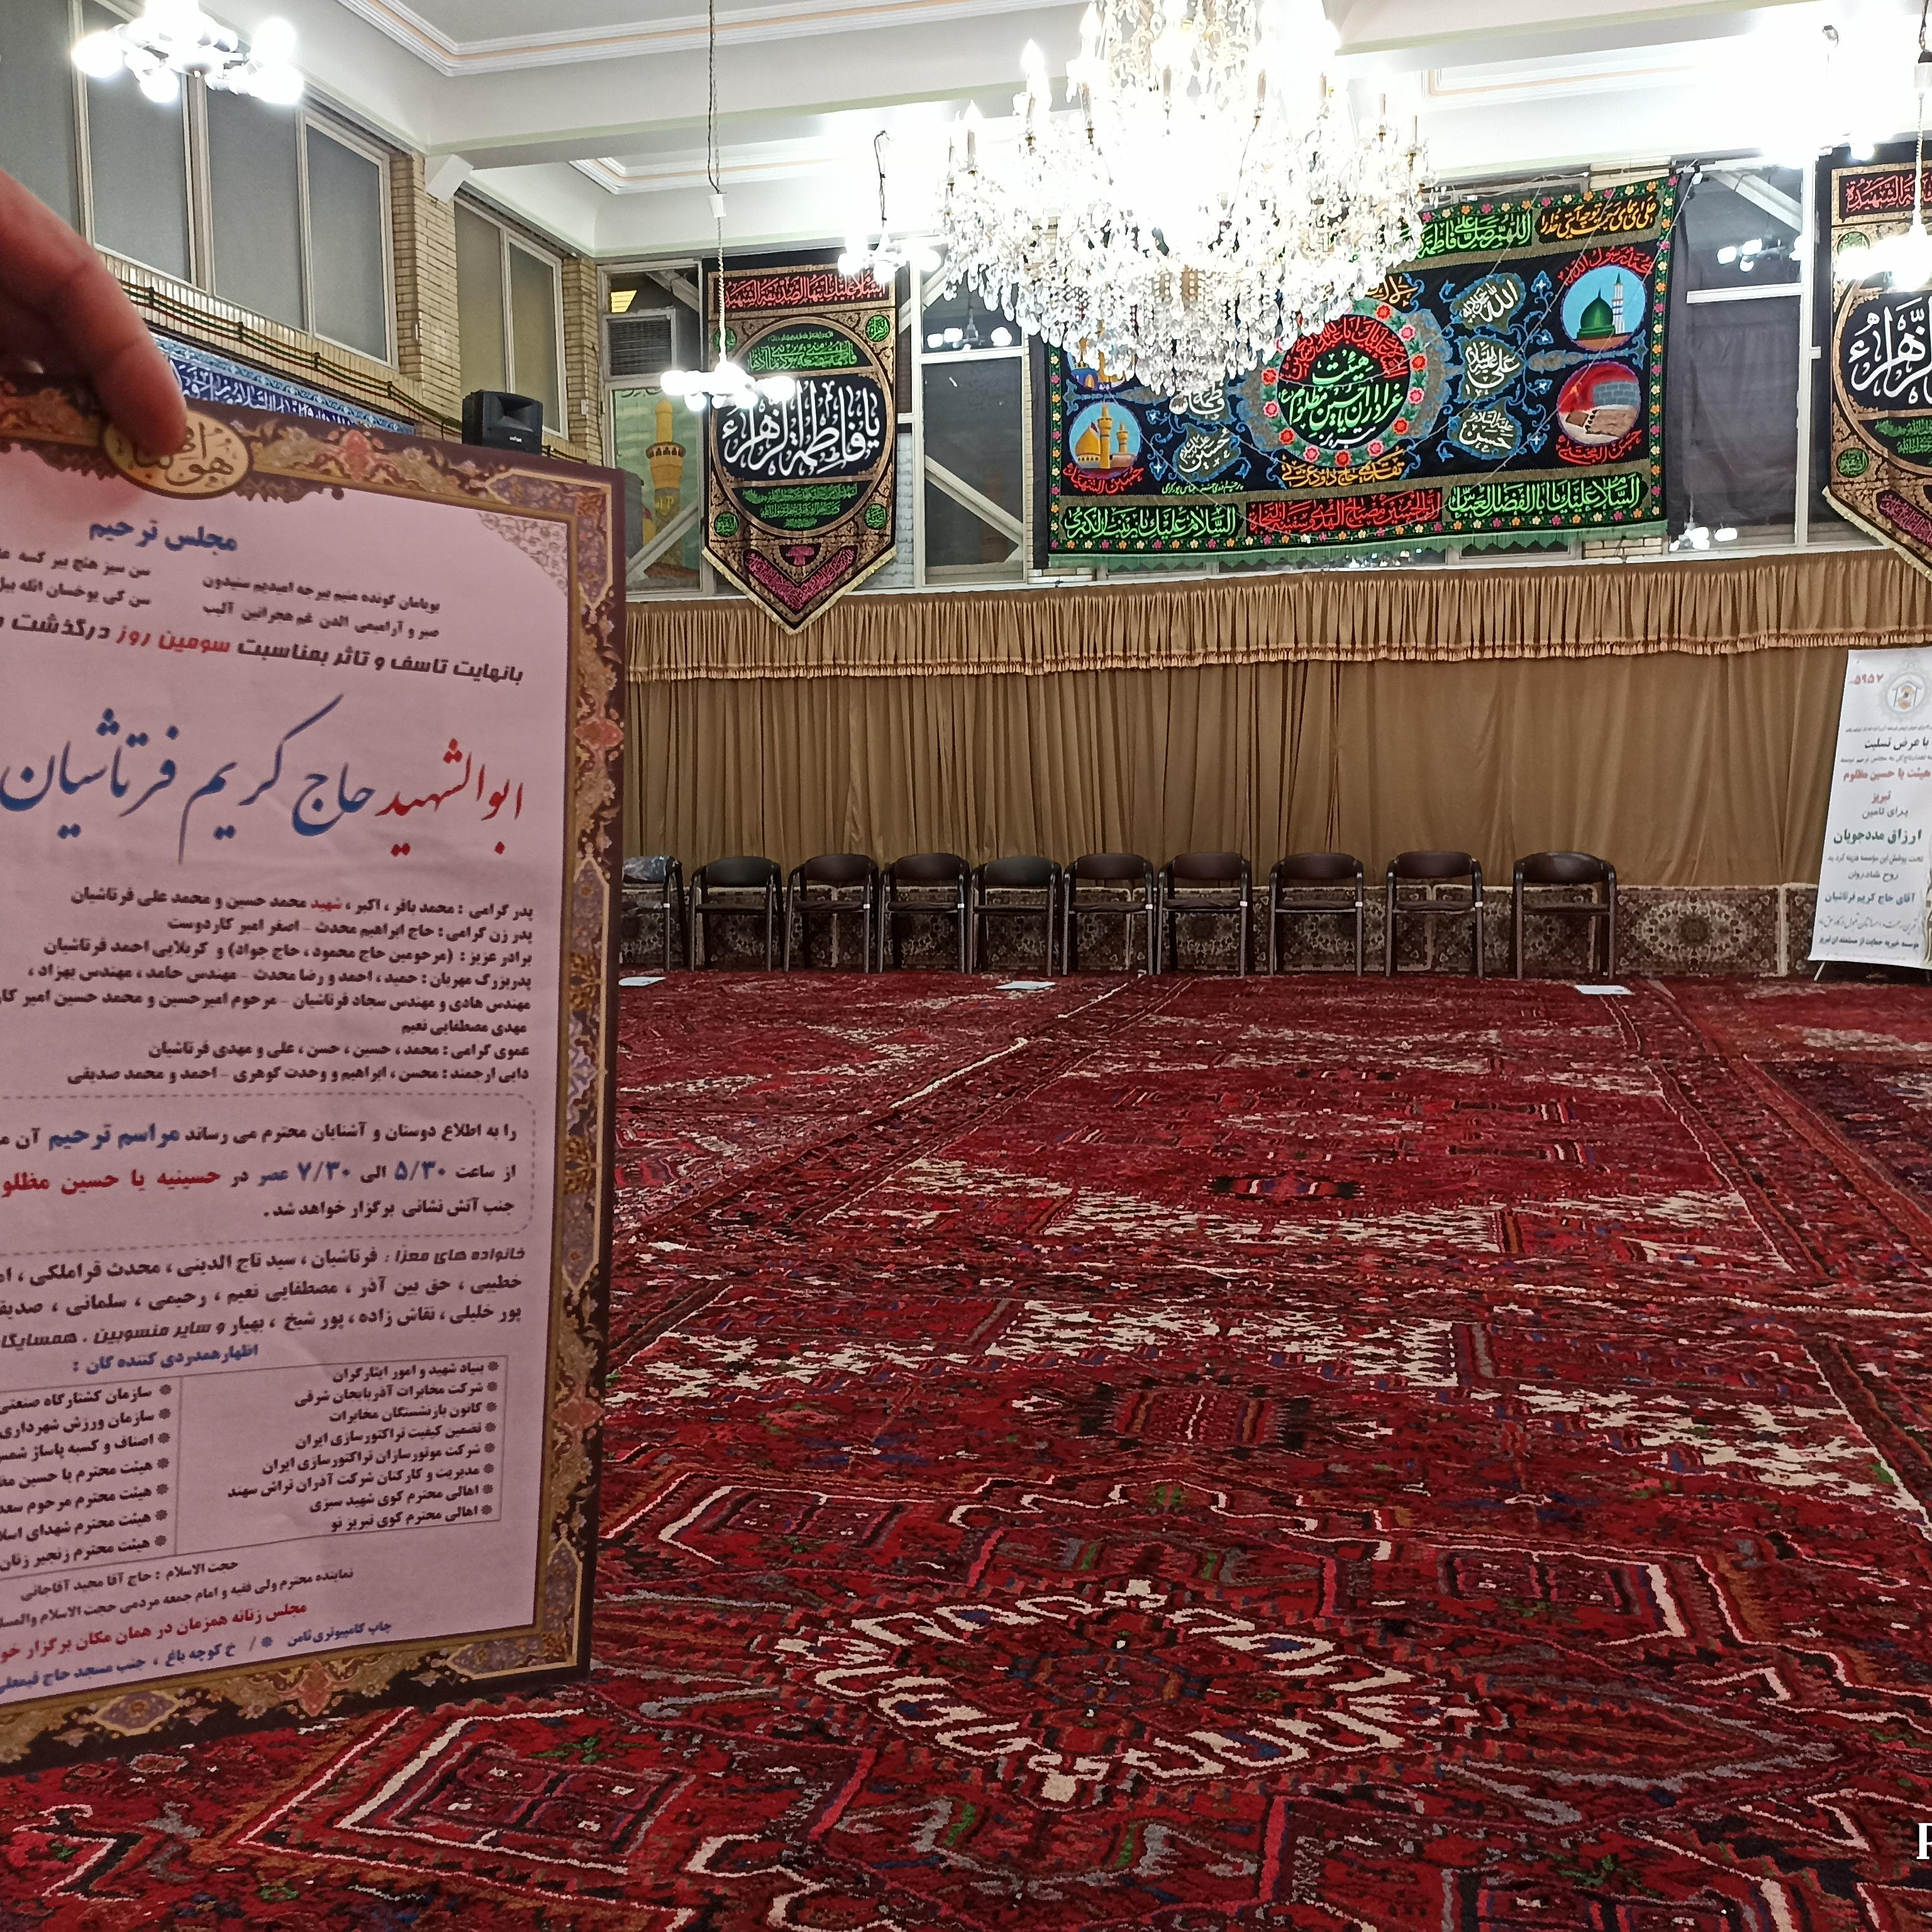 هو الباقی
مجلس ترحیم
بویامان گونده منیم بیرجه امیدیم سنیدون
سن سیز هئچ بیر کسه
صبر و آرامیمی الدن غم هجرانین آلیب
سن کی یوخسان
بانهایت تاسف و تاثر بمناسبت سومین روز درگذشت
ابوالشهید حاج کریم فرتاشیان
پدر گرامی : محمد باقر ، اکبر ، شهید محمد حسین و محمد علی فرتاشیان
پدر زن گرامی : حاج ابراهیم محدث - اصغر امیر کاردوست
برادر عزیز : (مرحومین حاج محمود ، حاج جواد) و کربلایی احمد فرتاشیان
پدربزرگ مهربان : حمید ، احمد و رضا محدث - مهندس حامد ، مهندس بهزاد ،
مهندس هادی و مهندس سجاد فرتاشیان - مرحوم امیرحسین و محمد حسین امیر
مهدی مصطفایی نعیم
عموی گرامی : محمد ، حسین ، حسن ، علی و مهدی فرتاشیان
دایی ارجمند : محسن ، ابراهیم و وحدت گوهری - احمد و محمد صدیقی
را به اطلاع دوستان و آشنایان محترم می رساند مراسم ترحیم آن
از ساعت ۵/۳۰ الی ۷/۳۰ عصر در حسینیه یا حسین مظلو
جنب آتش نشانی برگزار خواهد شد .
خانواده های معزا : فرتاشیان ، سید تاج الدینی ، محدث قراملکی ،
خطیبی ، حق بین آذر ، مصطفایی نعیم ، رحیمی ، سلمانی ،
پور خلیلی ، نقاش زاده ، پور شیخ ، بهیار و سایر منسوبین ،
اظهارهمدردی کننده گان :
❋ بنیاد شهید و امور ایثارگران
❋ شرکت مخابرات آذربایجان شرقی
❋ کانون بازنشستگان مخابرات
❋ تضمین کیفیت تراکتورسازی ایران
❋ شرکت موتورسازان تراکتورسازی ایران
❋ مدیریت و کارکنان شرکت آذران تراش سهند
❋ اهالی محترم کوی شهید سبزی
❋ اهالی محترم کوی تبریز نو
❋ سازمان کشتارگاه صنعتی
❋ سازمان ورزش شهرداری
❋ اصناف و کسبه پاساژ
❋ هیئت محترم یا حسین
❋ هیئت محترم مرحوم
❋ هیئت محترم شهدای
❋ هیئت محترم زنجیر زنان
حجت الاسلام : حاج آقا مجید آقاجانی
نماینده محترم ولی فقیه و امام جمعه مردمی حجت الاسلام
مجلس زنانه همزمان در همان مکان برگزار
چاپ کامپیوتری ثامن ❋ / خ کوچه باغ ، جنب مسجد حاج
السلام علیک ایتها الصدیقة الشهیدة
یا فاطمة الزهراء
اللهم صل علی فاطمة
محمد رسول الله
الله
علی
حسین
هیئت
عزاداران یا حسین مظلوم
تبریز
تقدیمی حاج داود
حسن المجتبی
حسین الشهید
السلام علیک یا زینب الکبری
ان الحسین مصباح الهدی و سفینة النجاة
السلام علیک یا ابا الفضل العباس
زهراء
۵۹۵۷
با عرض تسلیت
هیئت یا حسین مظلوم
تبریز
برای تامین
ارزاق مددجویان
تحت پوشش این مؤسسه هزینه گردید
روح شادروان
آقای حاج کریم فرتاشیان
موسسه خیریه حمایت از مستمندان تبریز